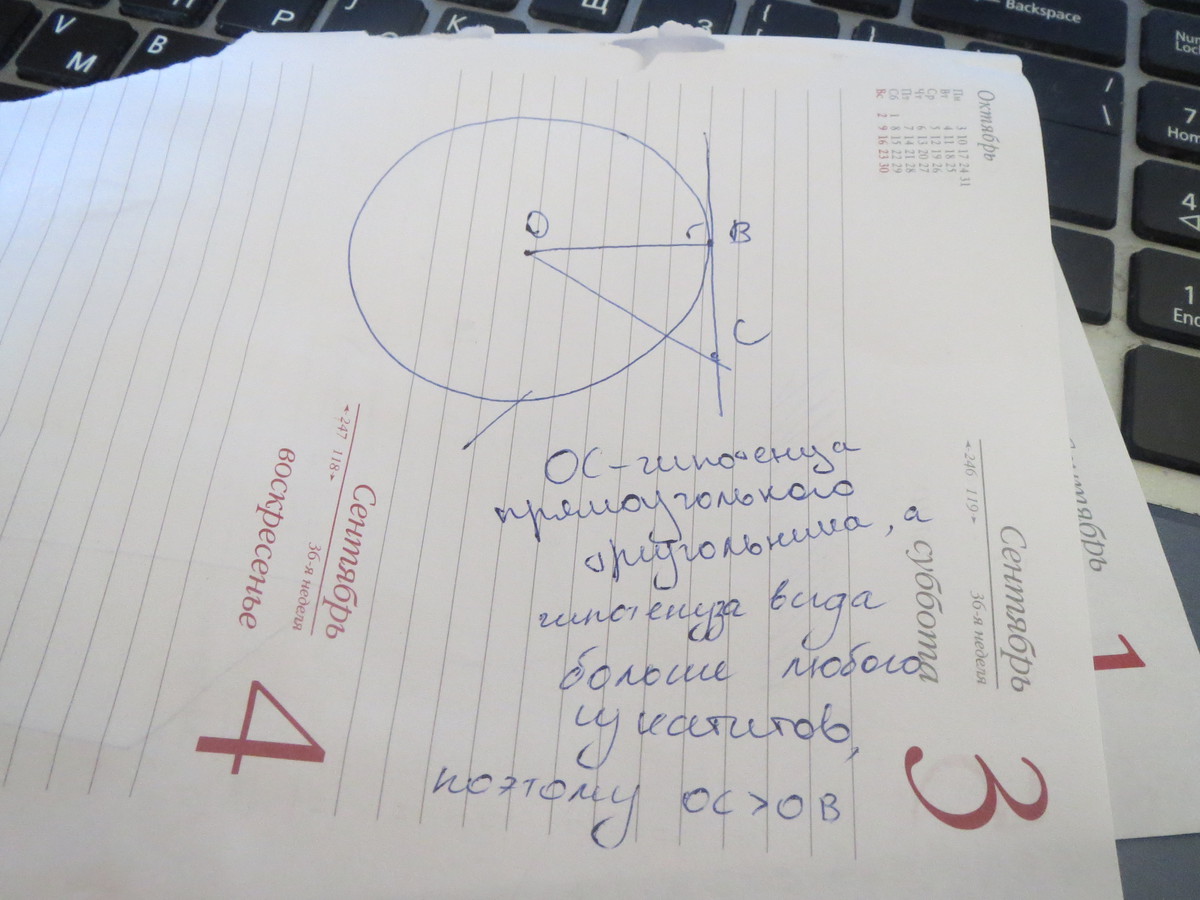 V
М
В
Р
К
Щ
З
{
[
}
Backspace
Num
Loc
/
\
7
Hom
4
1
End
Октябрь
Пн 3 10 17 24 31
Вт 4 11 18 25
Ср 5 12 19 26
Чт 6 13 20 27
Пт 7 14 21 28
Сб 1 8 15 22 29
Вс 2 9 16 23 30
О
В
С
ОС - гипотенуза
прямоугольного
треугольника, а
гипотенуза всгда
больше любого
из катитов,
поэтому ОС > ОВ
246 119
Сентябрь
36-я неделя
суббота
3
247 118
Сентябрь
36-я неделя
воскресенье
4
1